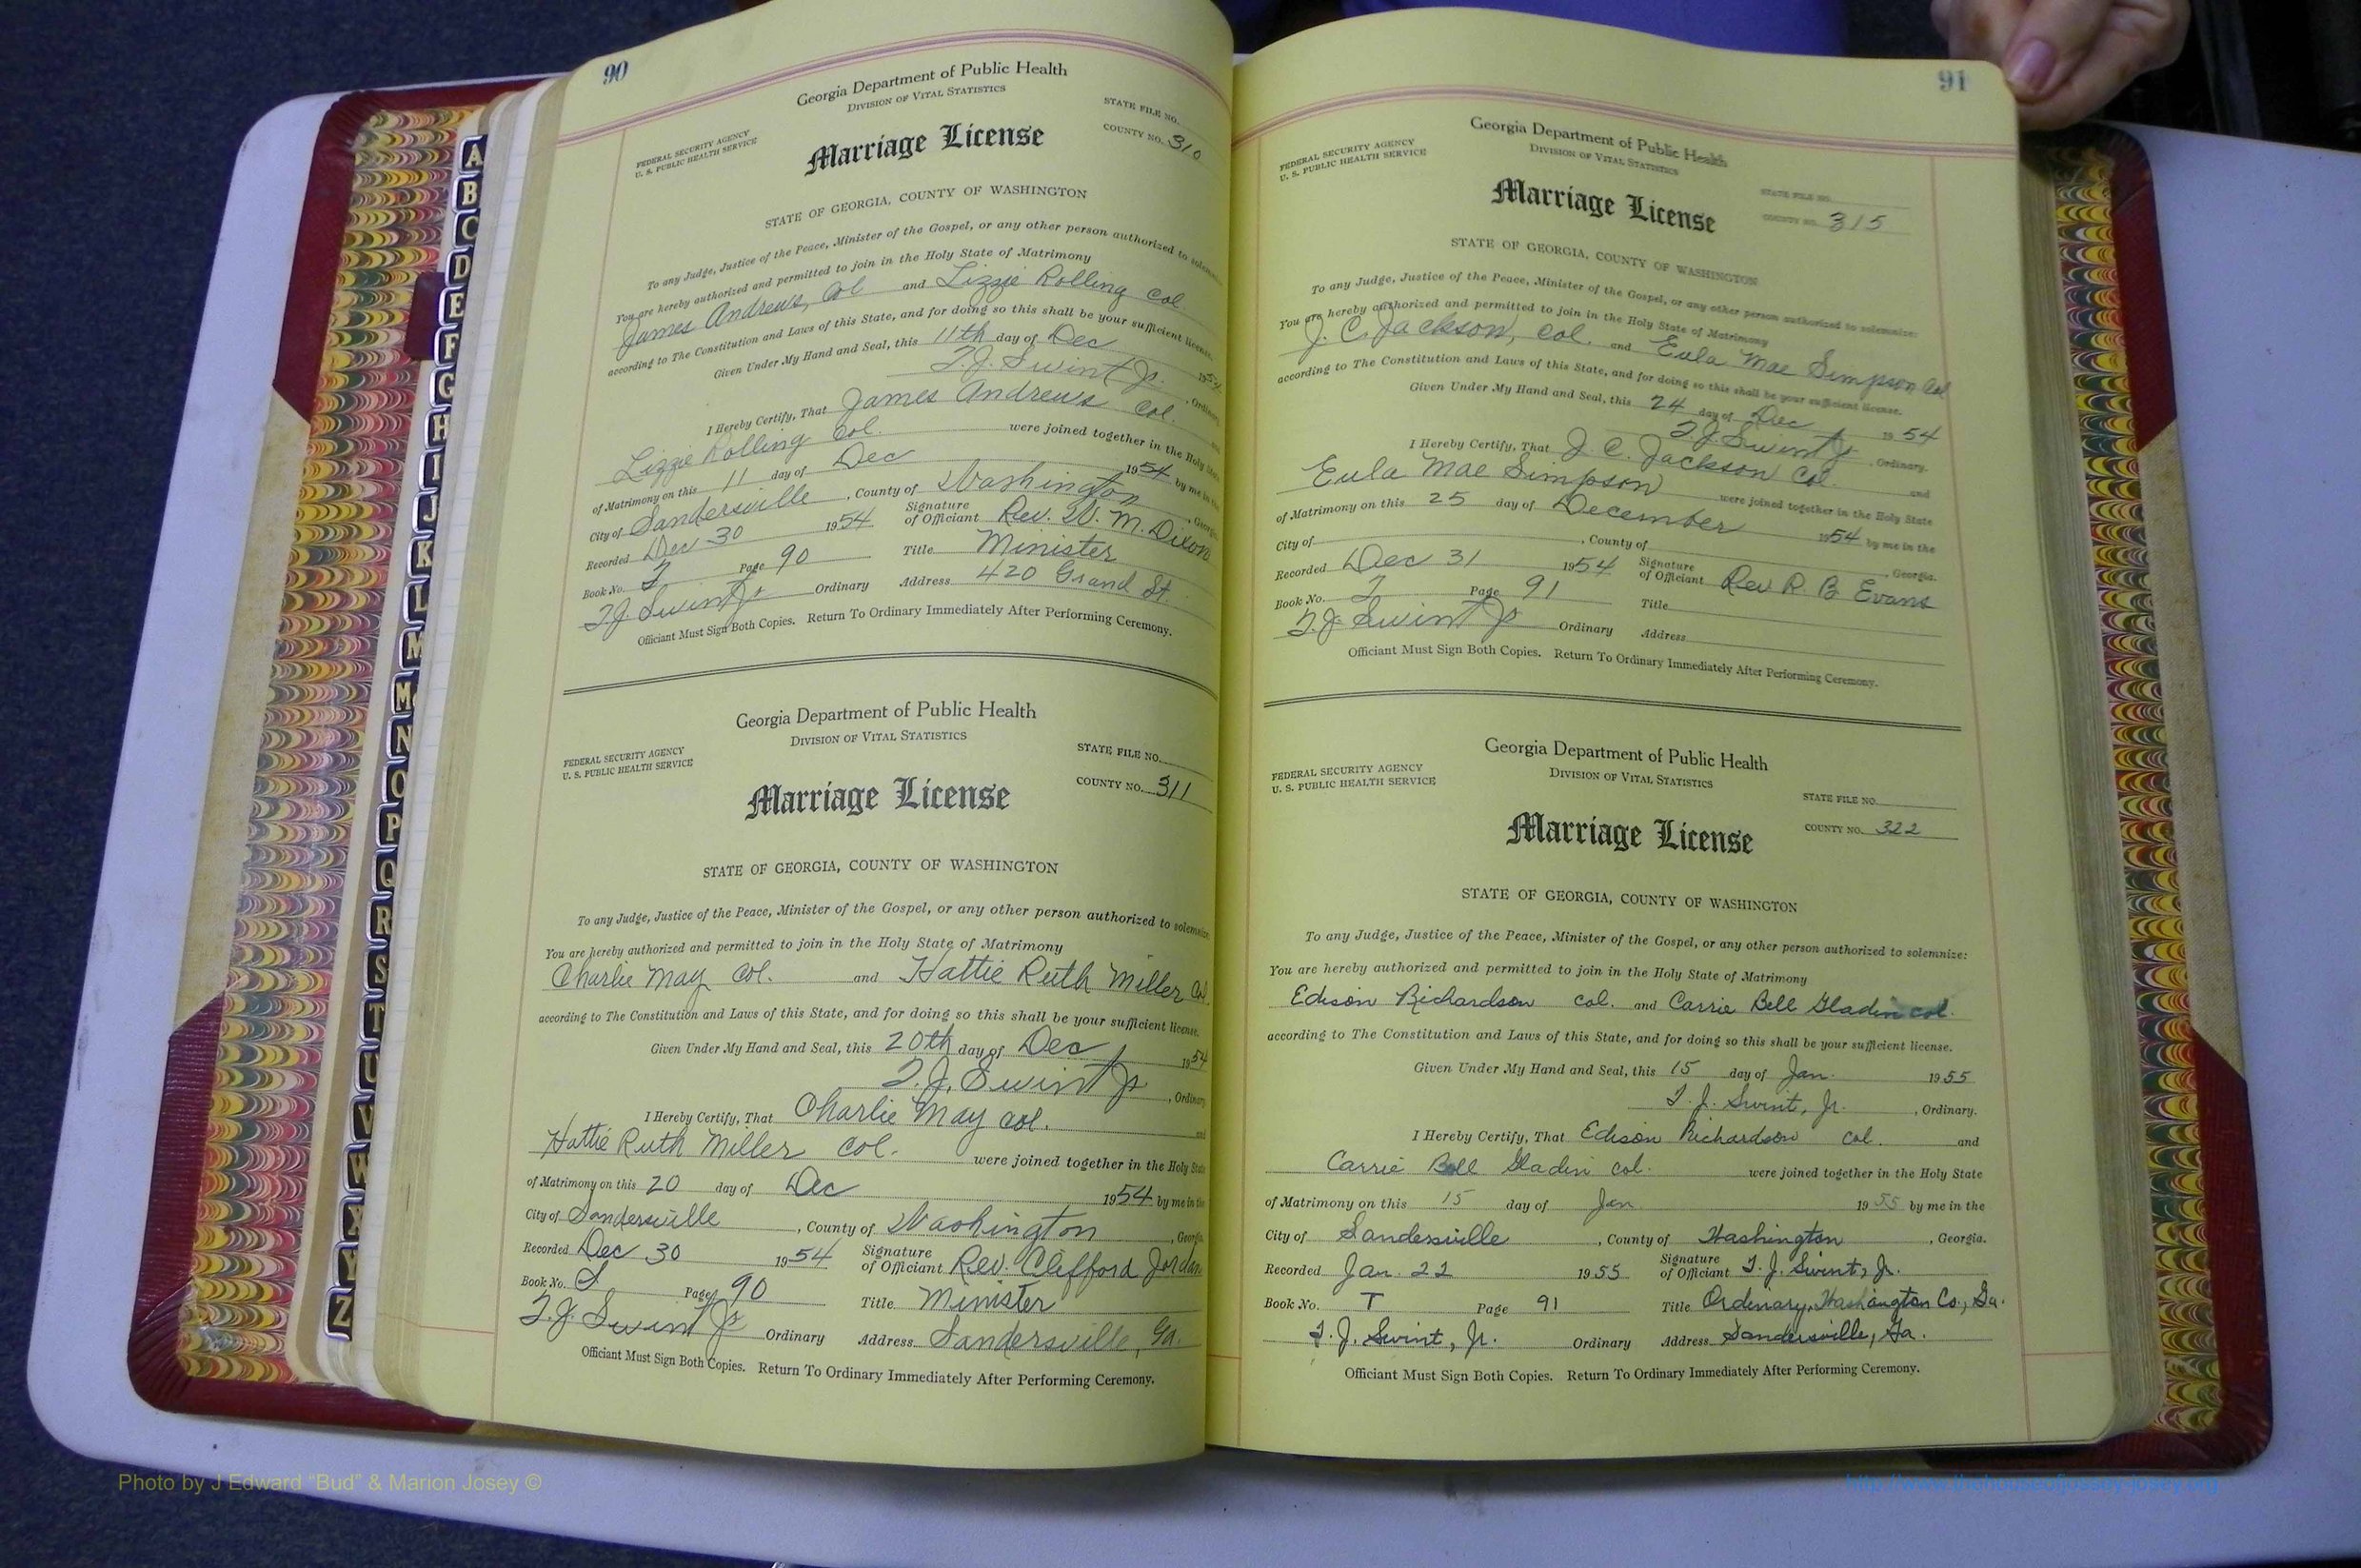 90
Georgia Department of Public Health
DIVISION OF VITAL STATISTICS
FEDERAL SECURITY AGENCY
U. S. PUBLIC HEALTH SERVICE
STATE FILE NO.
COUNTY NO. 310
Marriage License
STATE OF GEORGIA, COUNTY OF WASHINGTON
To any Judge, Justice of the Peace, Minister of the Gospel, or any other person authorized to
You are hereby authorized and permitted to join in the Holy State of Matrimony
James Andrews, Col and Lizzie Rolling Col.
according to The Constitution and Laws of this State, and for doing so this shall be your sufficient license.
Given Under My Hand and Seal, this 11th day of Dec 1954
T. J. Swint Jr. , Ordinary
I Hereby Certify, That James Andrews Col.
Lizzie Rolling Col. were joined together in the Holy
of Matrimony on this 11 day of Dec 1954 by me in
City of Sandersville , County of Washington
Recorded Dec 30 1954 Signature of Officiant Rev. W. M. Dixon
Book No. T Page 90 Title Minister
T J Swint Jr Ordinary Address 420 Grand St.
Officiant Must Sign Both Copies. Return To Ordinary Immediately After Performing Ceremony.
Georgia Department of Public Health
DIVISION OF VITAL STATISTICS
FEDERAL SECURITY AGENCY
U. S. PUBLIC HEALTH SERVICE
STATE FILE NO.
COUNTY NO. 311
Marriage License
STATE OF GEORGIA, COUNTY OF WASHINGTON
To any Judge, Justice of the Peace, Minister of the Gospel, or any other person authorized to solemnize
You are hereby authorized and permitted to join in the Holy State of Matrimony
Charlie May Col. and Hattie Ruth Miller Col.
according to The Constitution and Laws of this State, and for doing so this shall be your sufficient license.
Given Under My Hand and Seal, this 20th day of Dec 1954
T. J. Swint Jr , Ordinary
I Hereby Certify, That Charlie May Col. and
Hattie Ruth Miller Col. were joined together in the Holy State
of Matrimony on this 20 day of Dec 1954 by me in the
City of Sandersville , County of Washington , Georgia
Recorded Dec 30 1954 Signature of Officiant Rev. Clifford Jordan
Book No. Page 90 Title Minister
T. J. Swint Jr Ordinary Address Sandersville, Ga.
Officiant Must Sign Both Copies. Return To Ordinary Immediately After Performing Ceremony.
91
Georgia Department of Public Health
DIVISION OF VITAL STATISTICS
FEDERAL SECURITY AGENCY
U. S. PUBLIC HEALTH SERVICE
STATE FILE NO.
COUNTY NO. 315
Marriage License
STATE OF GEORGIA, COUNTY OF WASHINGTON
To any Judge, Justice of the Peace, Minister of the Gospel, or any other person authorized to solemnize:
You are hereby authorized and permitted to join in the Holy State of Matrimony
J. C. Jackson, Col. and Eula Mae Simpson Col
according to The Constitution and Laws of this State, and for doing so this shall be your sufficient license.
Given Under My Hand and Seal, this 24 day of Dec 1954
T. J. Swint Jr , Ordinary.
I Hereby Certify, That J. C. Jackson Col. and
Eula Mae Simpson were joined together in the Holy State
of Matrimony on this 25 day of December 1954 by me in the
City of , County of , Georgia.
Recorded Dec 31 1954 Signature of Officiant Rev R. B Evans
Book No. T Page 91 Title
T. J. Swint Jr Ordinary Address
Officiant Must Sign Both Copies. Return To Ordinary Immediately After Performing Ceremony.
Georgia Department of Public Health
DIVISION OF VITAL STATISTICS
FEDERAL SECURITY AGENCY
U. S. PUBLIC HEALTH SERVICE
STATE FILE NO.
COUNTY NO. 322
Marriage License
STATE OF GEORGIA, COUNTY OF WASHINGTON
To any Judge, Justice of the Peace, Minister of the Gospel, or any other person authorized to solemnize:
You are hereby authorized and permitted to join in the Holy State of Matrimony
Edison Richardson col. and Carrie Bell Gladin col.
according to The Constitution and Laws of this State, and for doing so this shall be your sufficient license.
Given Under My Hand and Seal, this 15 day of Jan. 1955
T. J. Swint, Jr. , Ordinary.
I Hereby Certify, That Edison Richardson col. and
Carrie Bell Gladin col. were joined together in the Holy State
of Matrimony on this 15 day of Jan. 1955 by me in the
City of Sandersville , County of Washington , Georgia.
Recorded Jan. 22 1955 Signature of Officiant T. J. Swint, Jr.
Book No. T Page 91 Title Ordinary, Washington Co., Ga.
T. J. Swint, Jr. Ordinary Address Sandersville, Ga.
Officiant Must Sign Both Copies. Return To Ordinary Immediately After Performing Ceremony.
A
B
C
D
E
F
G
H
I
J
K
L
M
Mc
N
O
P
Q
R
S
T
U
V
W
X
Y
Z
Photo by J Edward “Bud” & Marion Josey ©